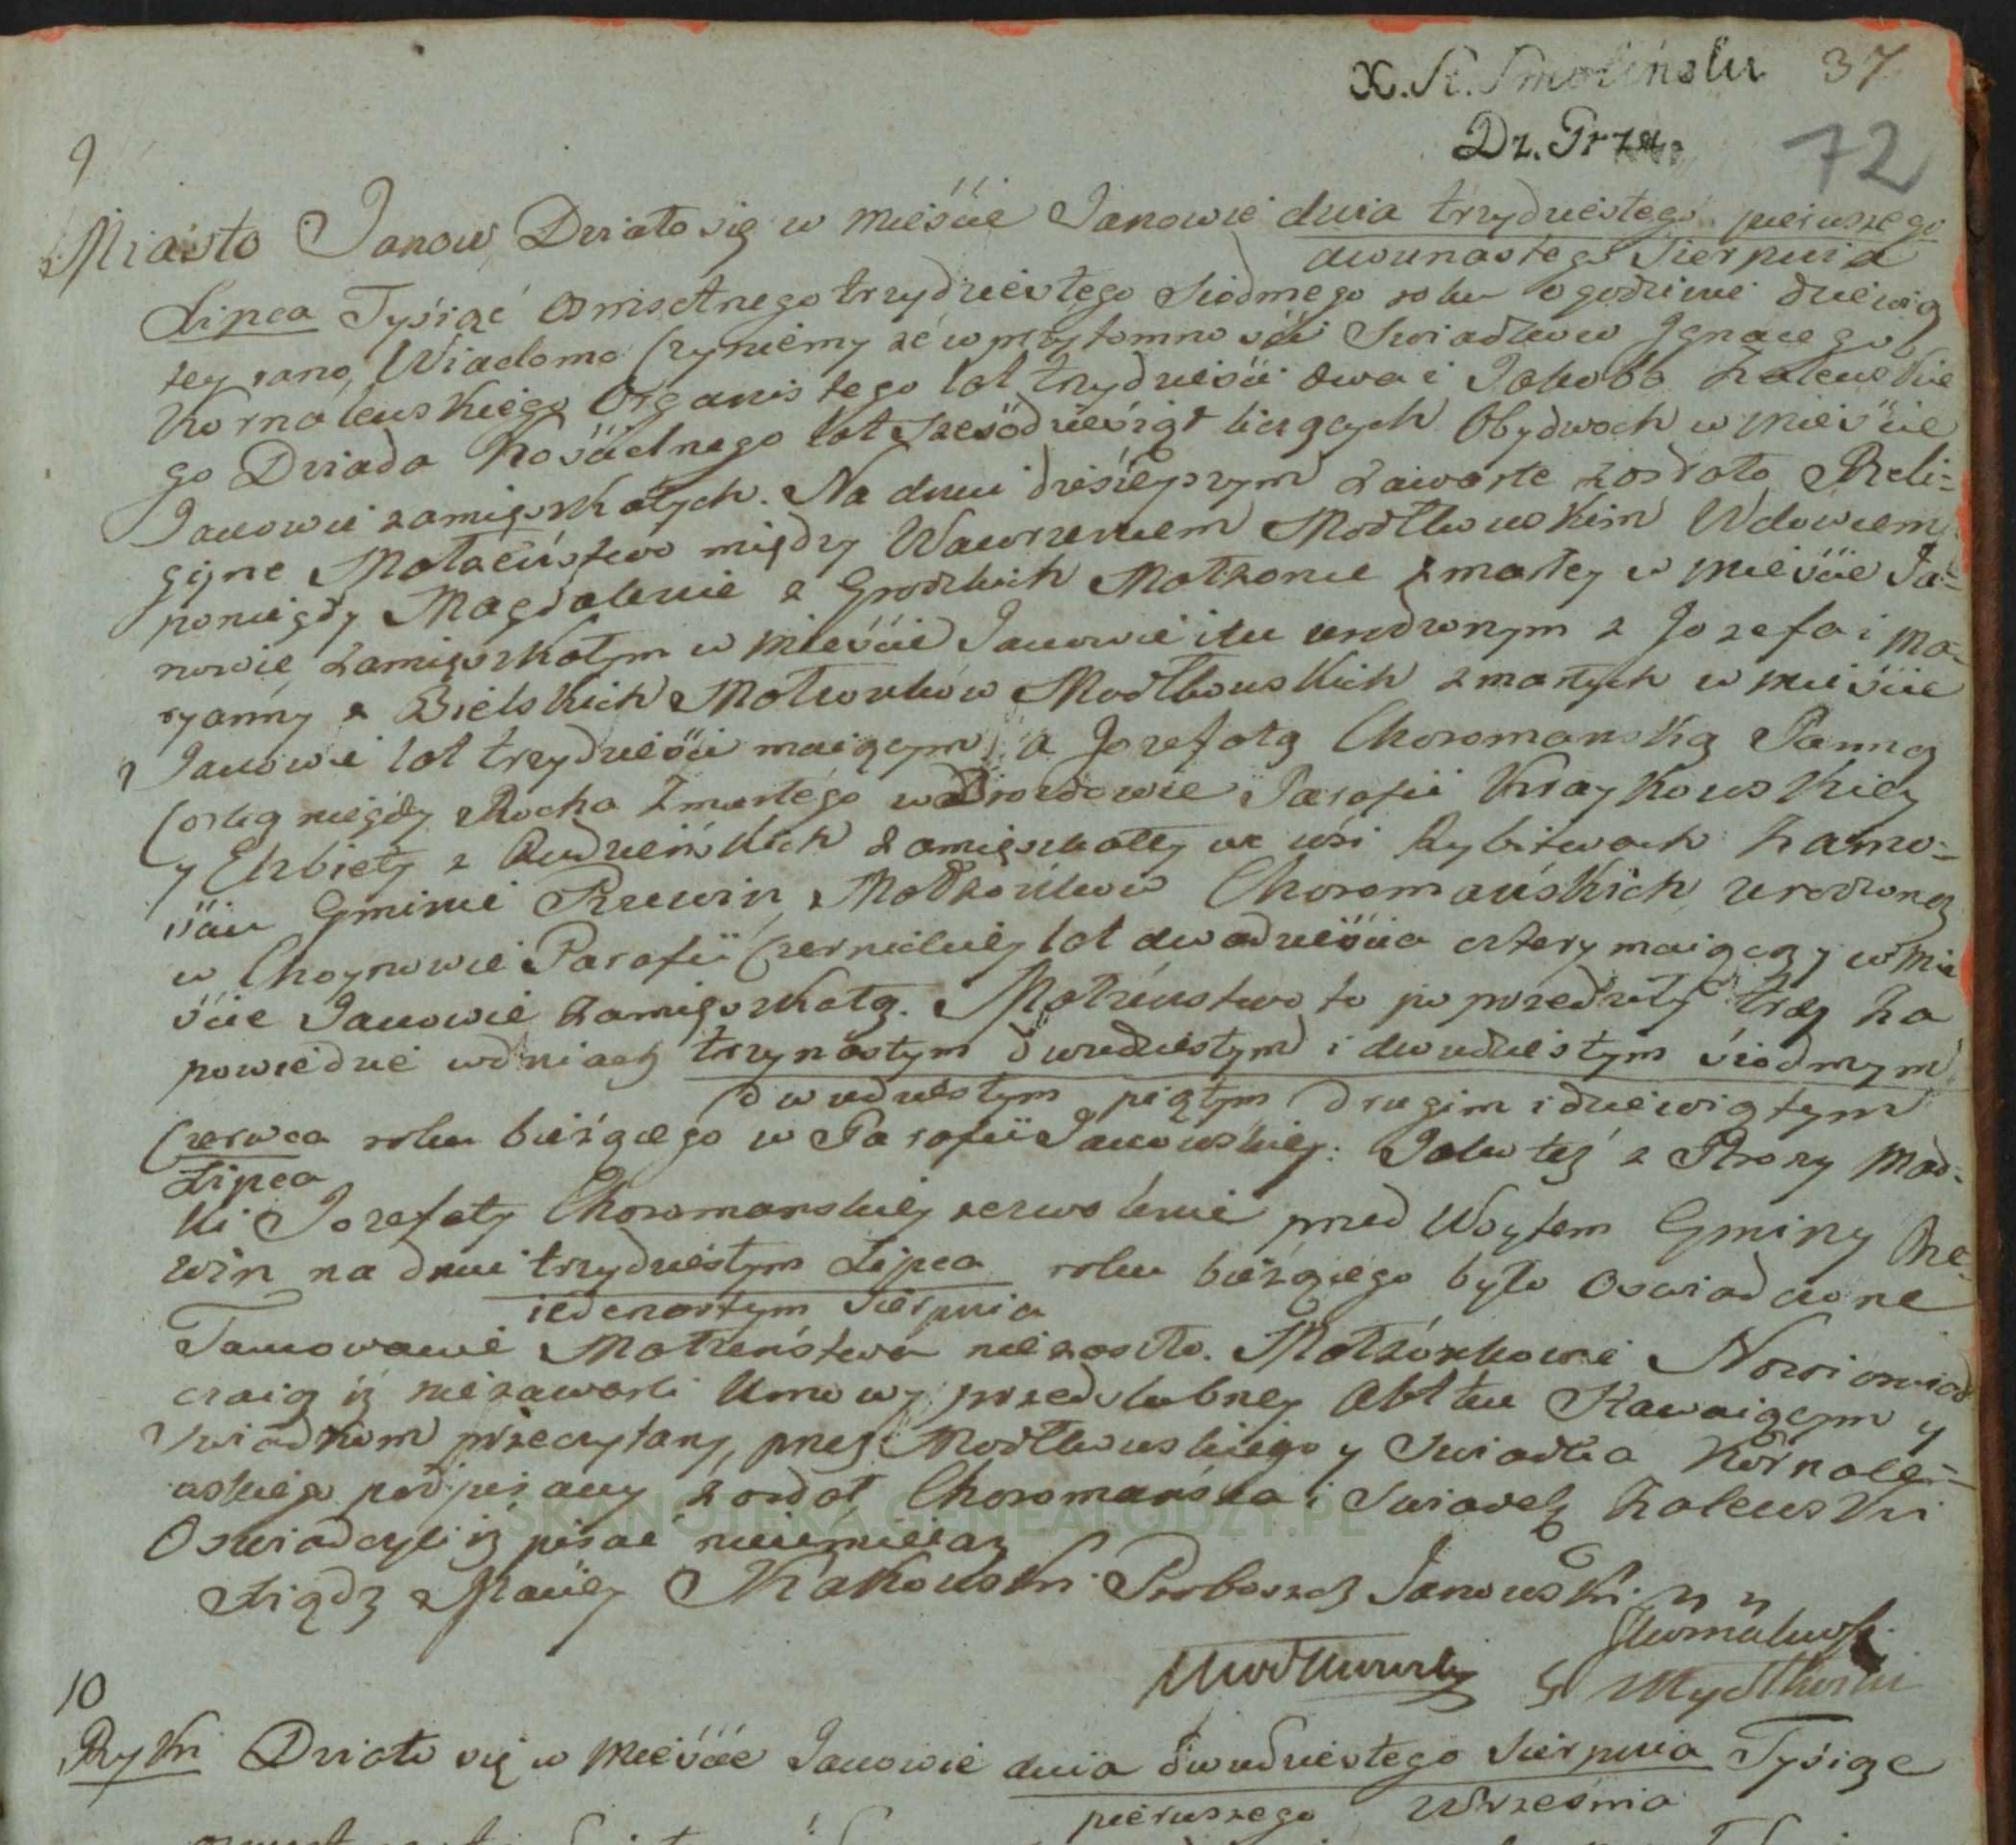 37
Dz.
72
9
Miasto Janow Działo się w mieście Janowie dnia trzydziestego pierwszego
dwunastego Sierpnia
Lipca Tysiąc Osmsetnego trzydziestego siodmego roku o godzinie dziewią
tey rano, Wiadomo Czyniemy że w przytomności Swiadkow Ignacego
Kornalewskiego Organistego lat trzydzieści dwa i Jakoba Zalewskie
go Dziada Kościelnego lat sześćdziesiąt liczących Obydwoch w mieście
Janowie zamięszkałych. Na dniu dzisieyszym zawarte zostało Reli=
giyne Małżeństwo między Wawrzencem Modtkowskim Wdowcem
poniegdy Magdalenie z Grodzkich Małżonce zmarłey w mieście Ja=
nowie zamięszkałym w mieście Janowie i tu urodzonym z Jozefa i Ma=
ryanny z Bielskich Małżonków Modtkowskich zmarłych w mieście
Janowie lat trzydzieści maiącym, a Jozefatą Choromanską Panną
Corką niegdy Rocha Zmarłego w Parafii Kraykowskiey
y Elzbiety z Rudzieńskich zamięszkałey we wsi Rybitwach Zamo=
ściu Gminie Rzewin Małżonków Choromańskich urodzoną
w Choynowie Parafii Czernickiey lat dwadzieścia cztery maiącą y w Mie
ście Janowie zamięszkałą. Małżeństwo to poprzedziły trzy Za
powiedzie w dniach trzynastym dwudziestym i dwudziestym siodmym
dwudziestym piątym drugim i dziewiątym
Czerwca roku bieżącego w Parafii Janowskiey: Jako też z Strony Mat=
Lipca
ki Jozefaty Choromanskiey zezwolenie przed Woytem Gminy Rze=
win na dniu trzydziestym Lipca roku bieżącego było Oswiadczone
iedenastym Sierpnia
Tamowanie Małżeństwa niezaszło. Małżonkowie Nowi oswiad
czaią iż niezawarli Umowy przedslubney Akt ten Stawaiącym y
Swiadkom przeczytany, przez Modtkowskiego y Swiadka Kornale=
wskiego podpisany został Choromańska i Swiadek Zalewski
Oswiadczyli iż pisać nieumieią
Xiądz Kakowski Proboszcz Janowski
10
Rytki Działo się w Mieście Janowie dnia dwudziestego Sierpnia Tysiąc
pierwszego Września
SKANOTEKA.GENEALODZY.PL